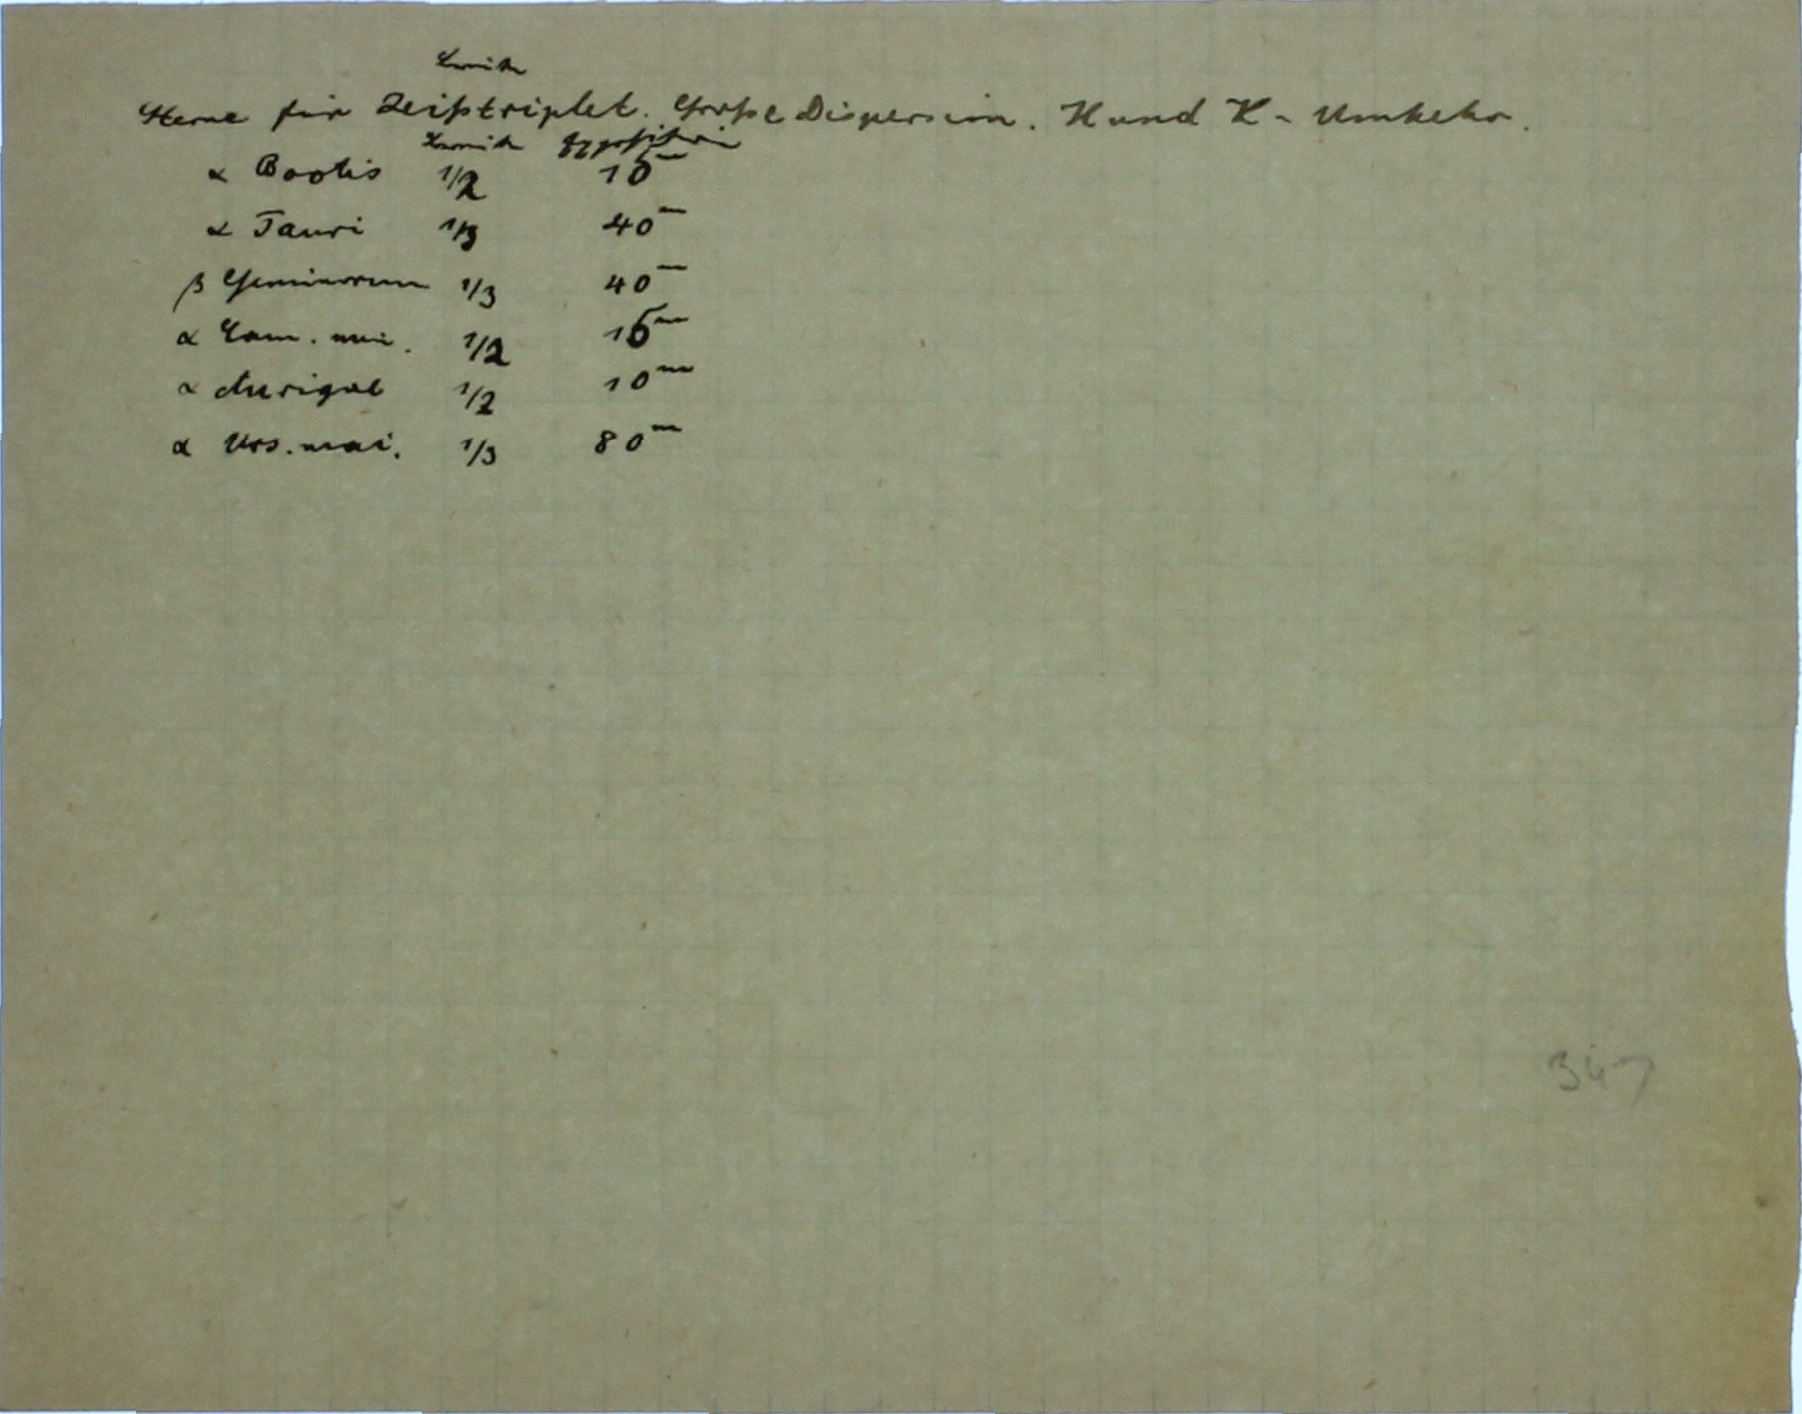 Sterne für Zeißtriplet. Große Dispersion. H und K-Umkehr.
Exposition
α Bootis 1/2 15ᵐ
α Tauri 1/3 40ᵐ
β Geminorum 1/3 40ᵐ
α Can. mi. 1/2 15ᵐ
α Aurigae 1/2 10ᵐ
α Urs. mai. 1/3 80ᵐ
347